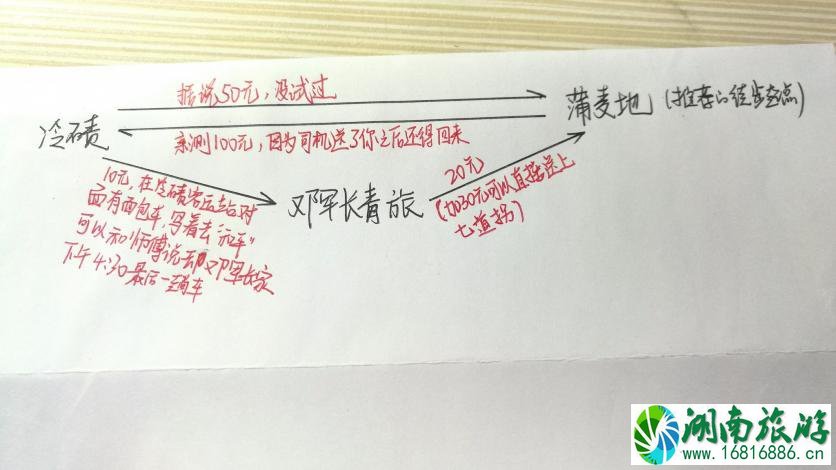 据说50元，没试过
冷碛
蒲麦地（推荐的徒步起点）
亲测100元，因为司机送了你之后还得回来
10元，在冷碛客运站对
面有面包车，写着去“沅车”
可以和师傅说去邓军长家
下午4:30最后一趟车
邓军长青旅
20元
（加30元可以直接送上
七道拐）
湖南旅游
www.16816886.cn